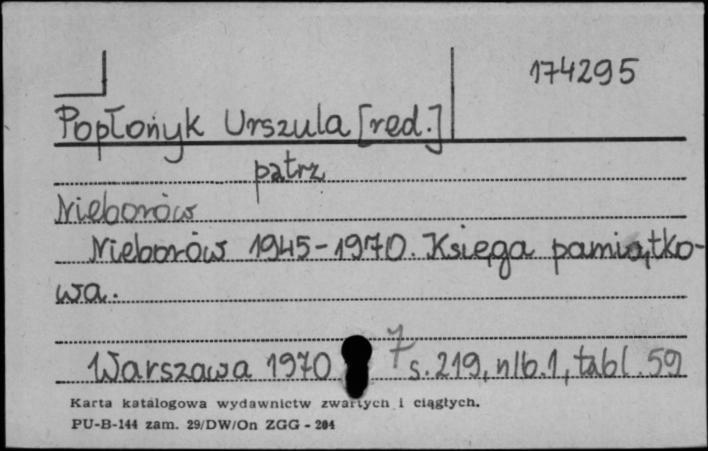 174295
Popłonyk Urszula [red.]
patrz
Nieborów
Nieborów 1945-1970. Księga pamiątko-
wa.
Warszawa 1970 7 s. 219, nlb. 1, tabl. 59
Karta katalogowa wydawnictw zwartych i ciągłych.
PU-B-144 zam. 29/DW/On ZGG - 204